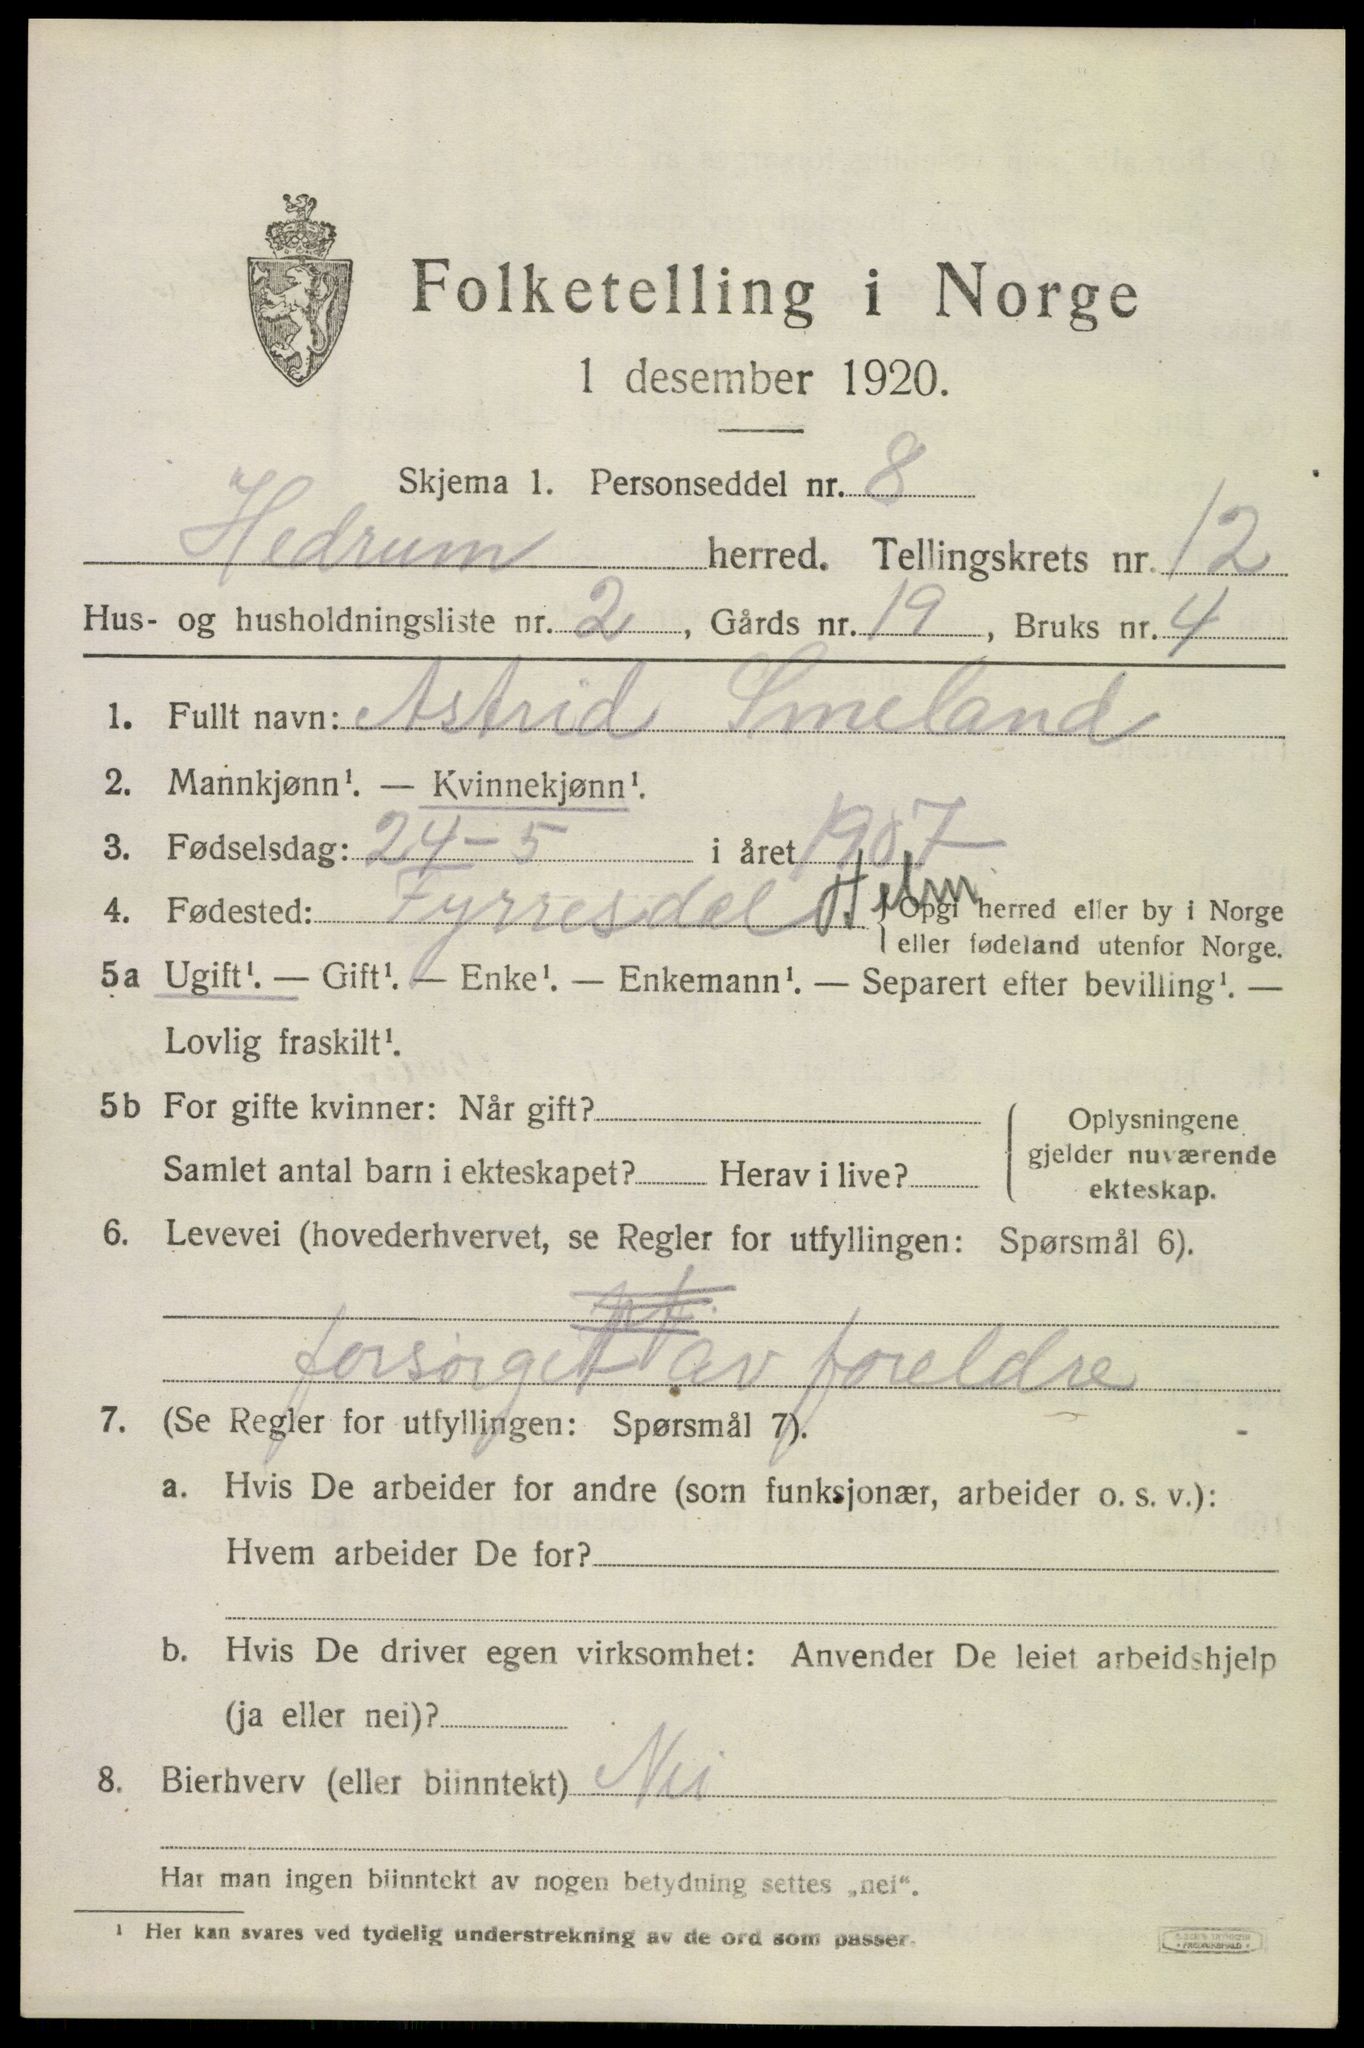 Folketelling i Norge
1 desember 1920.
Skjema 1. Personseddel nr. 8
Hedrum herred. Tellingskrets nr. 12
Hus- og husholdningsliste nr. 2, Gårds nr. 19, Bruks nr. 4
1. Fullt navn: Astrid Smeland
2. Mannkjønn¹. — Kvinnekjønn¹.
3. Fødselsdag: 24-5 i året 1907
4. Fødested: Fyrresdal { Opgi herred eller by i Norge
eller fødeland utenfor Norge.
5a Ugift¹. — Gift¹. — Enke¹. — Enkemann¹. — Separert efter bevilling¹. —
Lovlig fraskilt¹.
5b For gifte kvinner: Når gift?
Samlet antal barn i ekteskapet? Herav i live?
Oplysningene
gjelder nuværende
ekteskap.
6. Levevei (hovederhvervet, se Regler for utfyllingen: Spørsmål 6).
forsørget av foreldre
7. (Se Regler for utfyllingen: Spørsmål 7).
a. Hvis De arbeider for andre (som funksjonær, arbeider o. s. v.):
Hvem arbeider De for?
b. Hvis De driver egen virksomhet: Anvender De leiet arbeidshjelp
(ja eller nei)?
8. Bierhverv (eller biinntekt) Nei
Har man ingen biinntekt av nogen betydning settes „nei“.
¹ Her kan svares ved tydelig understrekning av de ord som passer.